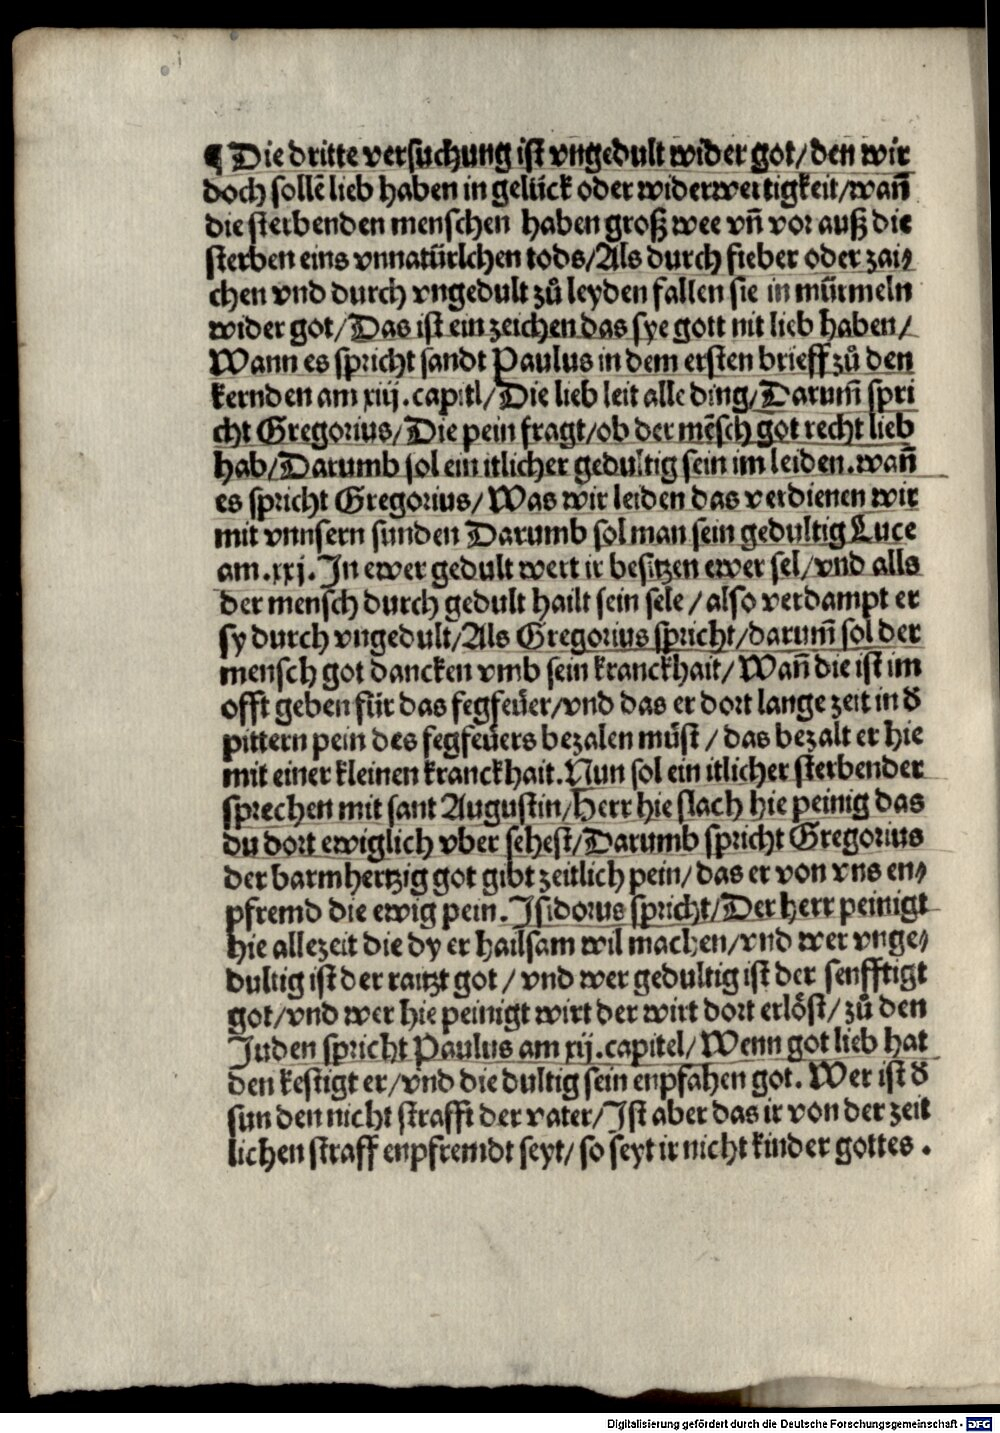 ¶ Die dritte versuchung ist vngedult wider got/ den wir
doch sollē lieb haben in gelück oder widerwertigkeit/wañ
die sterbenden menschen haben groß wee vñ vor auß die
sterben eins vnnatürlchen tods/Als durch fieber oder zai⸗
chen vnd durch vngedult zů leyden fallen sie in mürmeln
wider got/Das ist ein zeichen das sye gott nit lieb haben/
Wann es spricht sandt Paulus in dem ersten brieff zů den
kernden am xiij.capitl/Die lieb leit alle ding/Darum̄ spri
cht Gregorius/Die pein fragt/ob der mēsch got recht lieb
hab/Darumb sol ein itlicher gedultig sein im leiden.wañ
es spricht Gregorius/Was wir leiden das verdienen wir
mit vnnsern sunden Darumb sol man sein gedultig Luce
am.xxj.In ewer gedult wert ir besitzen ewer sel/vnd alls
der mensch durch gedult hailt sein sele/also verdampt er
sy durch vngedult/Als Gregorius spricht/darum̄ sol der
mensch got dancken vmb sein kranckhait/Wañ die ist im
offt geben für das fegfeüer/vnd das er dort lange zeit in d̛
pittern pein des fegfeüers bezalen müst/das bezalt er hie
mit einer kleinen kranckhait.Nun sol ein itlicher sterbender
sprechen mit sant Augustin/Herr hie slach hie peinig das
du dort ewiglich vber sehest/Darumb spricht Gregorius
der barmhertzig got gibt zeitlich pein/das er von vns en⸗
pfremd die ewig pein.Isidorus spricht/Der herr peinigt
hie allezeit die dy er hailsam wil machen/vnd wer vnge⸗
dultig ist der raitzt got/vnd wer gedultig ist der senfftigt
got/vnd wer hie peinigt wirt der wirt dort erlöst/zů den
Juden spricht Paulus am xij.capitel/Wenn got lieb hat
den kestigt er/vnd die dultig sein enpfahen got.Wer ist d̛
sun den nicht strafft der vater/Ist aber das ir von der zeit
lichen straff enpfremdt seyt/so seyt ir nicht kinder gottes.
Digitalisierung gefördert durch die Deutsche Forschungsgemeinschaft - DFG